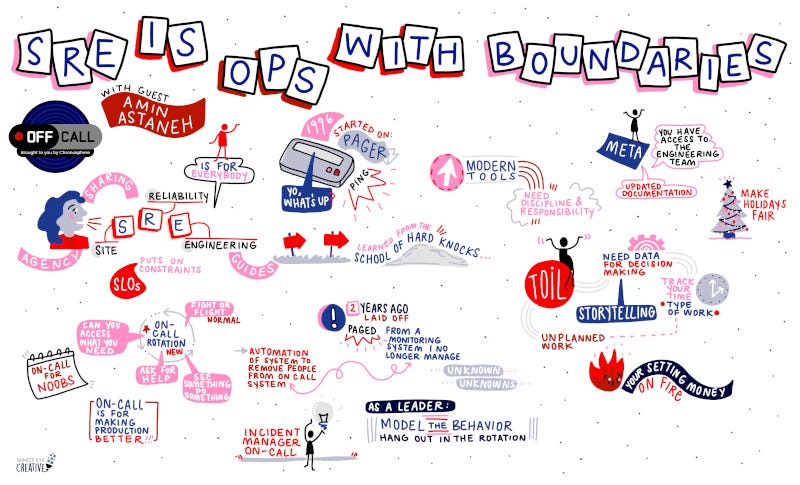 SRE IS OPS WITH BOUNDARIES
WITH GUEST
AMIN
ASTANEH
OFF CALL
Brought to you by Chronosphere
IS FOR
EVERYBODY
SHARING
RELIABILITY
S R E
SITE
ENGINEERING
AGENCY
GUIDES
SLOs
PUTS ON
CONSTRAINTS
1996
STARTED ON:
PAGER
YO,
WHAT'S UP
PING
LEARNED FROM THE
SCHOOL OF HARD KNOCKS...
MODERN
TOOLS
NEED
DISCIPLINE &
RESPONSIBILITY
META
YOU HAVE
ACCESS TO
THE
ENGINEERING
TEAM
UPDATED
DOCUMENTATION
MAKE
HOLIDAYS
FAIR
TOIL
NEED DATA
FOR DECISION
MAKING
STORYTELLING
TRACK
YOUR
TIME
TYPE
OF WORK
UNPLANNED
WORK
YOUR SETTING MONEY
ON FIRE
ON-CALL
FOR
NOOBS
CAN YOU
ACCESS
WHAT YOU
NEED
ON-
CALL
ROTATION
NEW
FIGHT OR
FLIGHT
NORMAL
ASK FOR
HELP
SEE
SOMETHING
DO
SOMETHING
ON-CALL
IS FOR
MAKING
PRODUCTION
BETTER!!!
AUTOMATION
OF SYSTEM TO
REMOVE PEOPLE
FROM ON CALL
SYSTEM
2 YEARS AGO
LAID OFF
PAGED
FROM A
MONITORING
SYSTEM I NO
LONGER MANAGE
UNKNOWN
UNKNOWNS
INCIDENT
MANAGER
ON-CALL
AS A LEADER:
MODEL THE BEHAVIOR
HANG OUT IN THE ROTATION
MIND'S EYE
CREATIVE